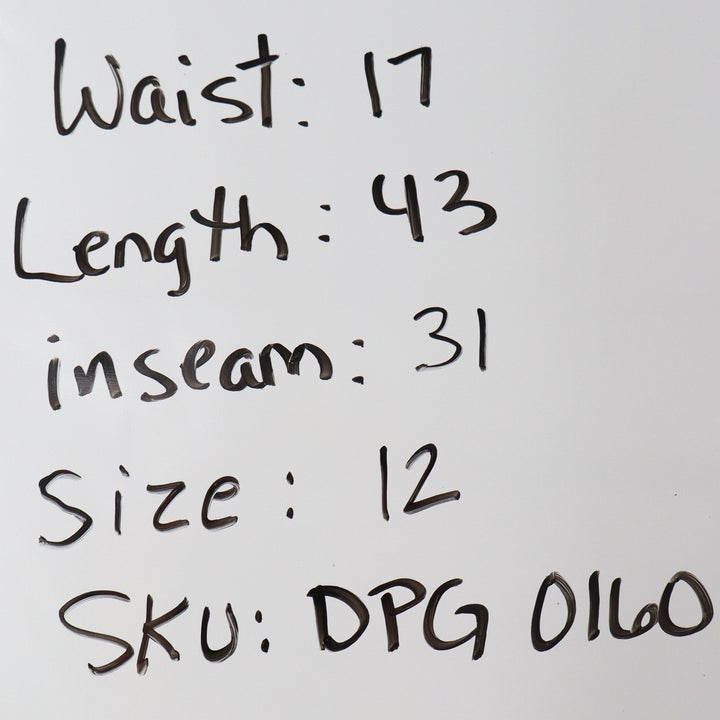 Waist: 17
Length: 43
inseam: 31
Size: 12
SKU: DPG 0160